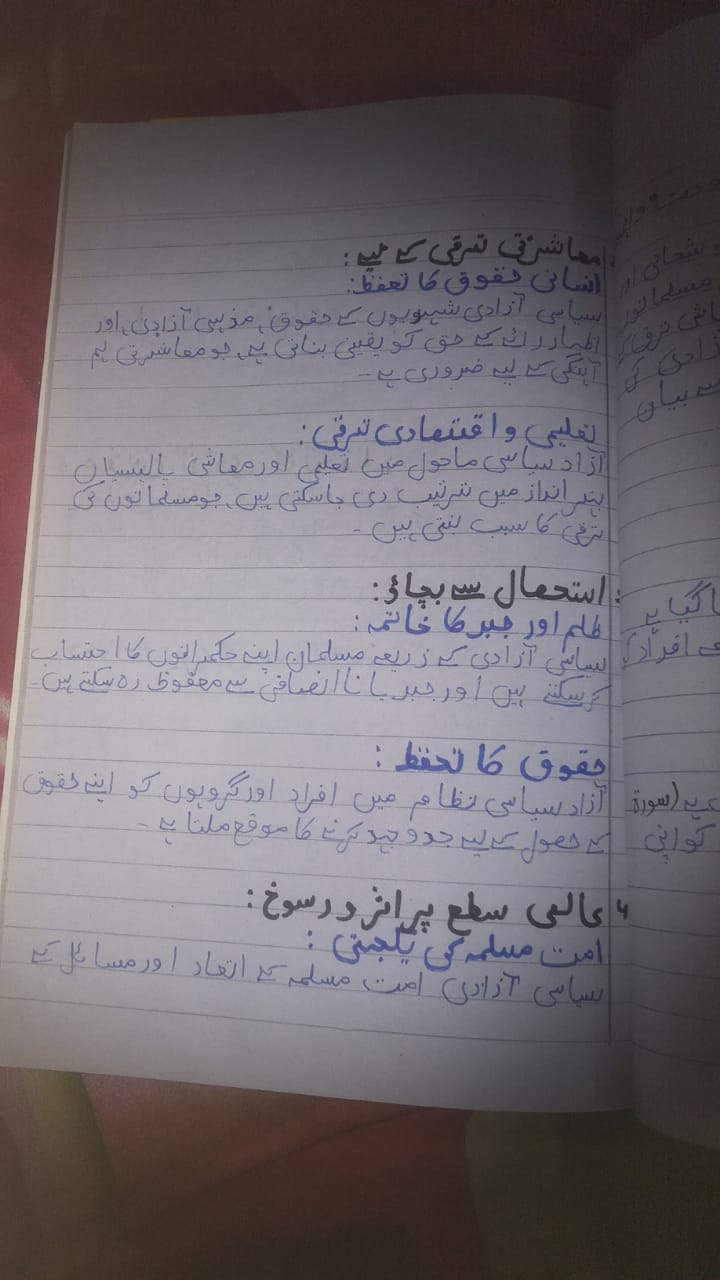 معاشرتی ترقی کے لیے:
انسانی حقوق کا تحفظ:
سیاسی آزادی شہریوں کے حقوق، مذہبی آزادی، اور
اظہار رائے کے حق کو یقینی بناتی ہے، جو معاشرتی ہم
آہنگی کے لیے ضروری ہے۔
تعلیمی و اقتصادی ترقی:
آزاد سیاسی ماحول میں تعلیمی اور معاشی پالیسیاں
بہتر انداز میں ترتیب دی جاسکتی ہیں، جو مسلمانوں کی
ترقی کا سبب بنتی ہیں۔
استحصال سے بچاؤ:
ظلم اور جبر کا خاتمہ:
سیاسی آزادی کے ذریعہ مسلمان اپنے حکمرانوں کا احتساب
کرسکتے ہیں اور جبر یا ناانصافی سے محفوظ رہ سکتے ہیں۔
حقوق کا تحفظ:
آزاد سیاسی نظام میں افراد اور گروہوں کو اپنے حقوق
کے حصول کے لیے جدوجہد کرنے کا موقع ملتا ہے۔
عالمی سطح پر اثر و رسوخ:
امت مسلمہ کی یکجہتی:
سیاسی آزادی امت مسلمہ کے اتحاد اور مسائل کے
اور
مسلمانوں
آزادی کی
بیان
گیا ہے
افراد
ہے (سورۃ
کو اپنی